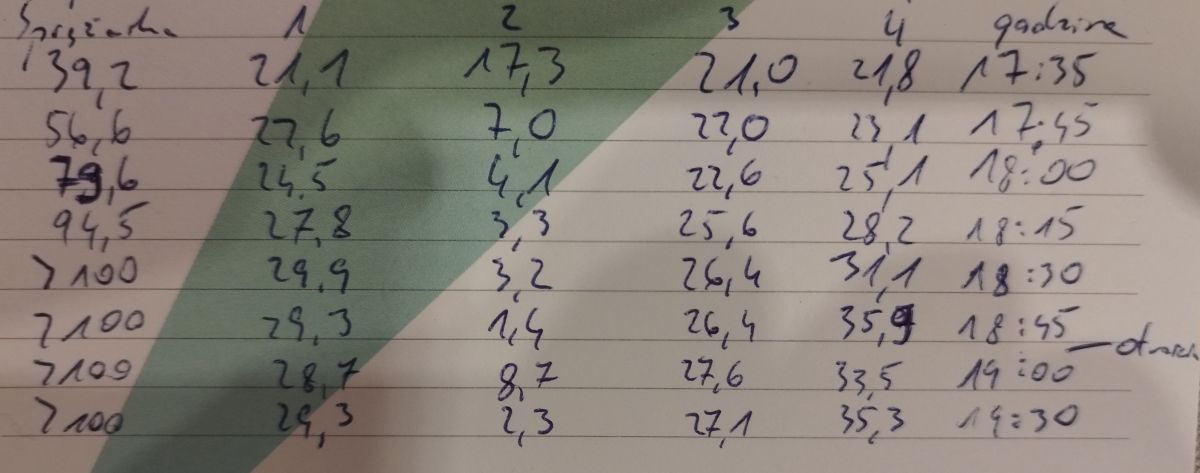 Sprężarka 1 2 3 4 godzina
39,2 21,1 17,3 21,0 21,8 17:35
56,6 22,6 7,0 22,0 23,1 17:45
79,6 24,5 4,1 22,6 25,1 18:00
94,5 27,8 3,3 25,6 28,2 18:15
>100 29,9 3,2 26,4 31,1 18:30
>100 29,3 1,4 26,4 35,9 18:45
>100 28,7 8,7 27,6 33,5 19:00
>100 29,3 2,3 27,1 35,3 19:30